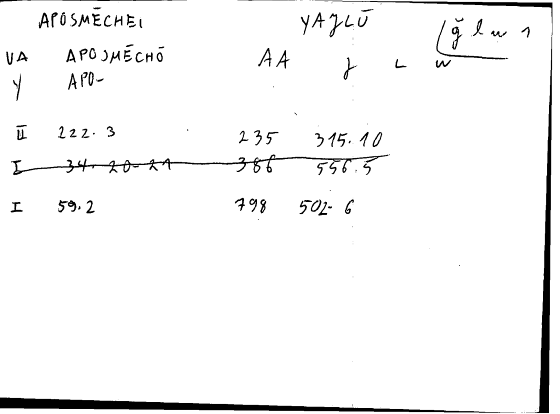 APOSMĒCHEI YAJLŪ ğ l w 1
VA APOSMĒCHŌ AA J L W
Y APO-
II 222.3 235 315.10
I 34.20-21 386 556.5
I 59.2 798 502-6